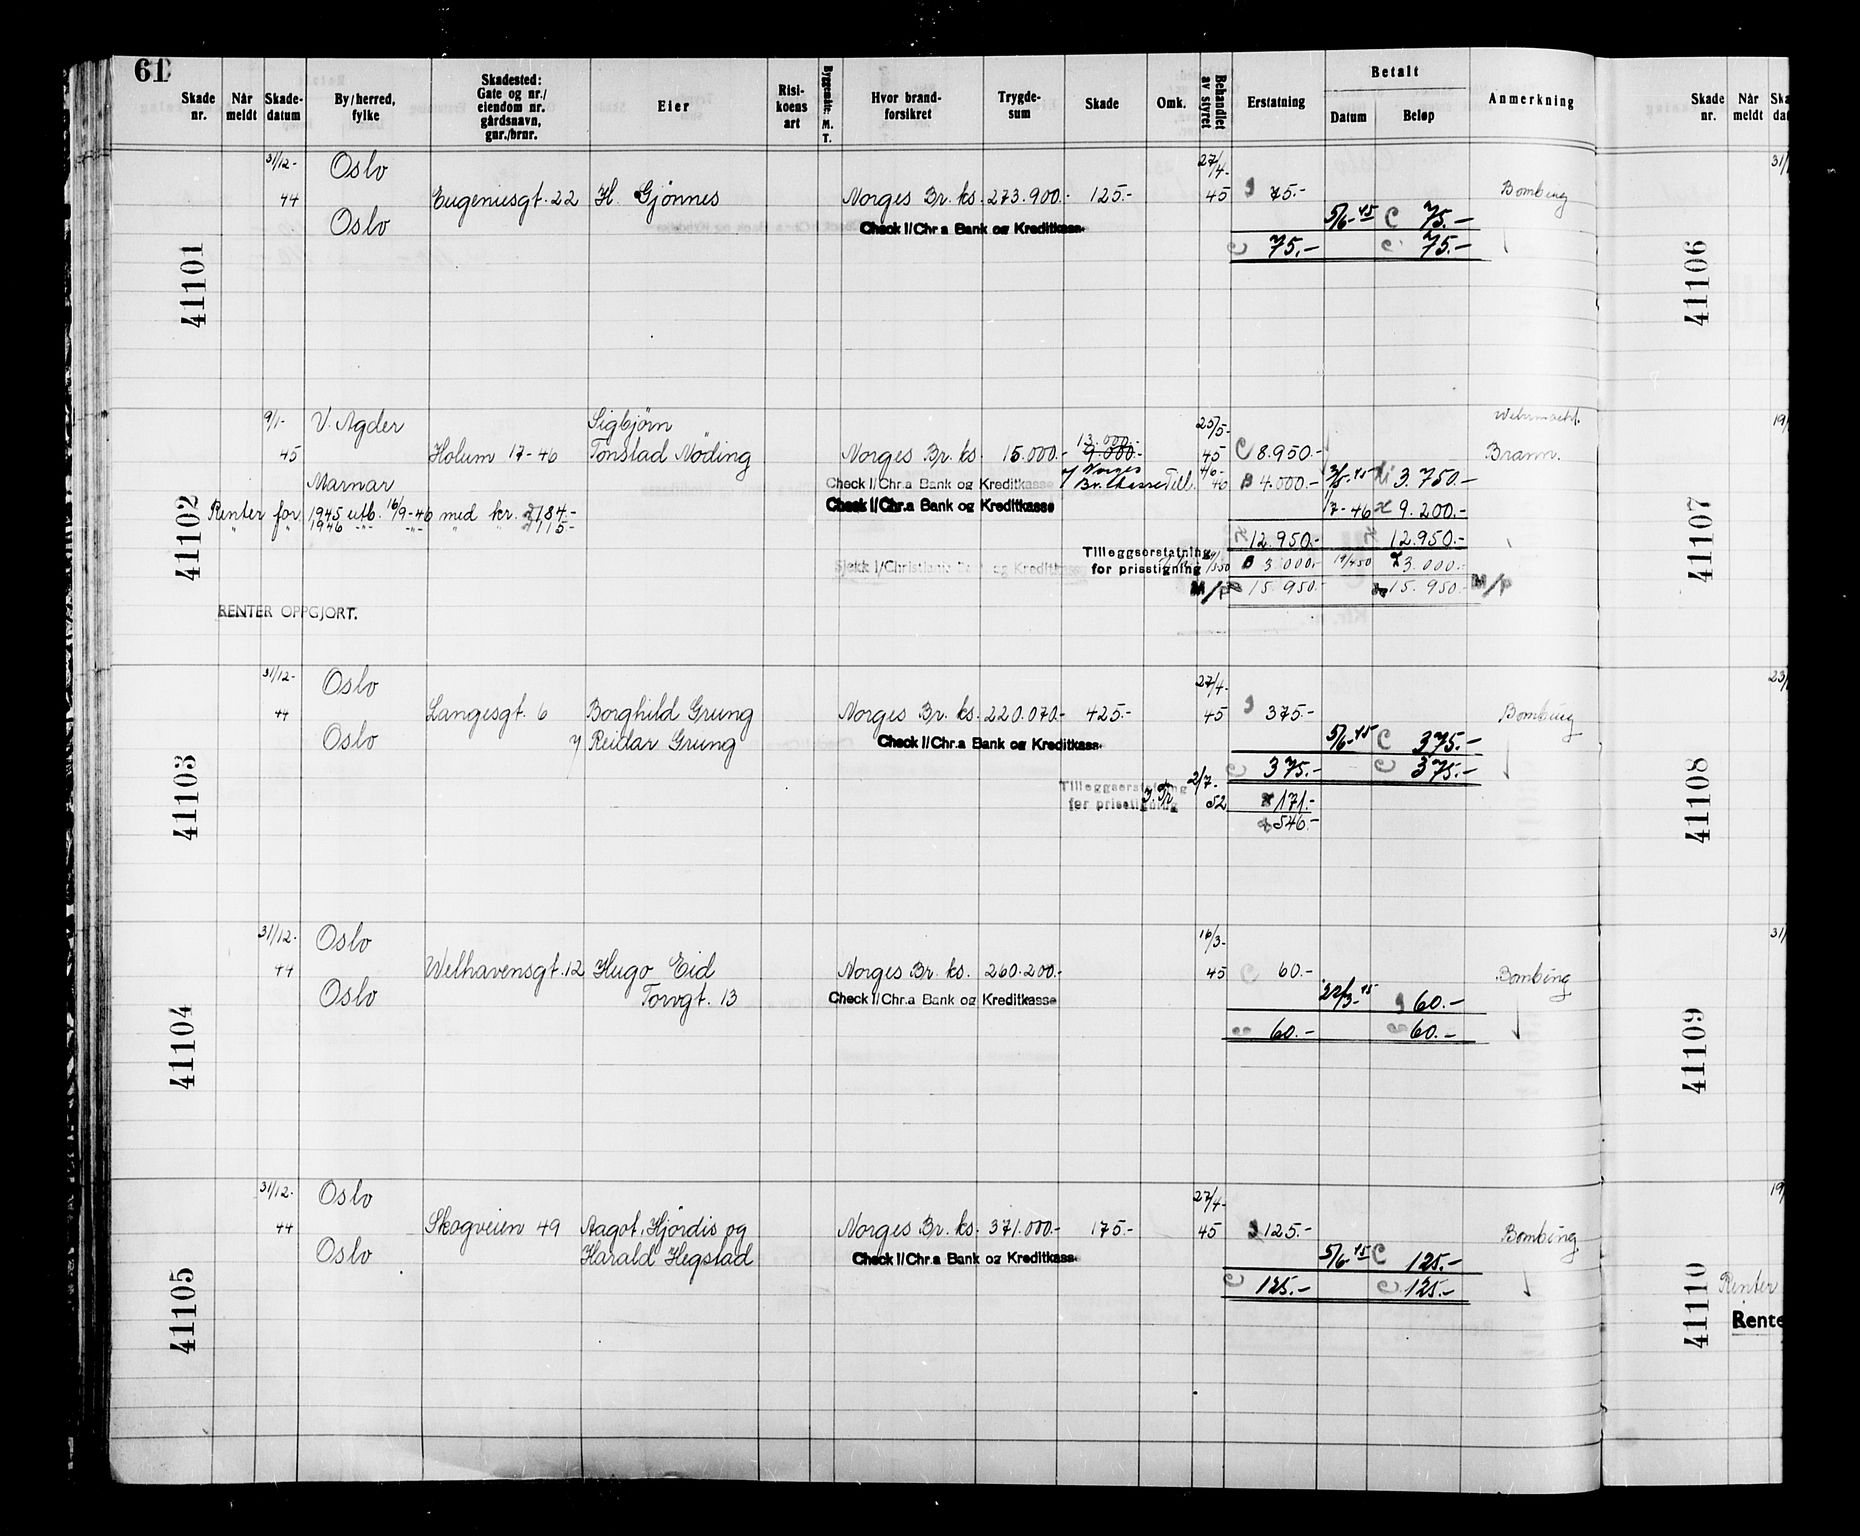 61
Skade nr. Når meldt Skade-datum By/herred, fylke Skadested: Gate og nr./ eiendom nr. gårdsnavn, gnr./brnr. Eier Risi-koens art Byggemåte: M. T. Hvor brand-forsikret Trygde-sum Skade Omk. Behandlet av styret Erstatning Betalt Datum Beløp Anmerkning Skade nr. Når meldt
41101
31/12- Oslo 27/4-
44 Eugeniesgt. 22 H. Gjønnes Norges Br. ks. 273.900.- 125.- 45 75.- Bombing
Oslo Check I/Chr.a Bank og Kreditkasse 5/6-45 75.-
75.- 75.-
41102
9/1- V. Agder Sigbjørn 25/5- Wehrmacht.
13.000.-
45 Holum 17-46 Tonstad Nøding Norges Br. ks. 15.000.- 9.000.- 45 8.950.- Brann.
Marnar Check I/Chr.a Bank og Kreditkasse Norges Br. kasse Till. 46 4.000.- 45 3.750.-
Renter for 1945 utb. 16/9-46 med kr. 184.- Check I/Chr.a Bank og Kreditkasse 1/7-46 9.200.-
" " 1946 -"- -"- " " 115-
12.950.- 12.950.-
Tilleggserstatning for prisstigning 3.000.- 19/4 50 3.000.-
M/P 15.950.- 15.950.- M/P
RENTER OPPGJORT.
41103
31/12- Oslo 27/4-
44 Langesgt. 6 Borghild Grung Norges Br. ks. 220.070.- 425.- 45 375.- Bombing
Oslo Reidar Grung Check I/Chr.a Bank og Kreditkasse 5/6-45 375.-
375.- 375.-
Tilleggserstatning for prisstigning 2/7- 52 171.-
546.-
41104
31/12- Oslo 16/3-
44 Welhavensgt. 12 Hugo Eid Norges Br. ks. 260.200.- 45 60.- Bombing
Oslo Torvgt. 13 Check I/Chr.a Bank og Kreditkasse 22/3-45 60.-
60.- 60.-
41105
31/12- Oslo 27/4-
44 Skogveien 49 Aagot, Hjördis og Norges Br. ks. 371.000.- 175.- 45 125.- Bombing
Oslo Harald Hegstad Check I/Chr.a Bank og Kreditkasse 5/6-45 125.-
125.- 125.-
41106
41107
41108
41109
41110
Renter